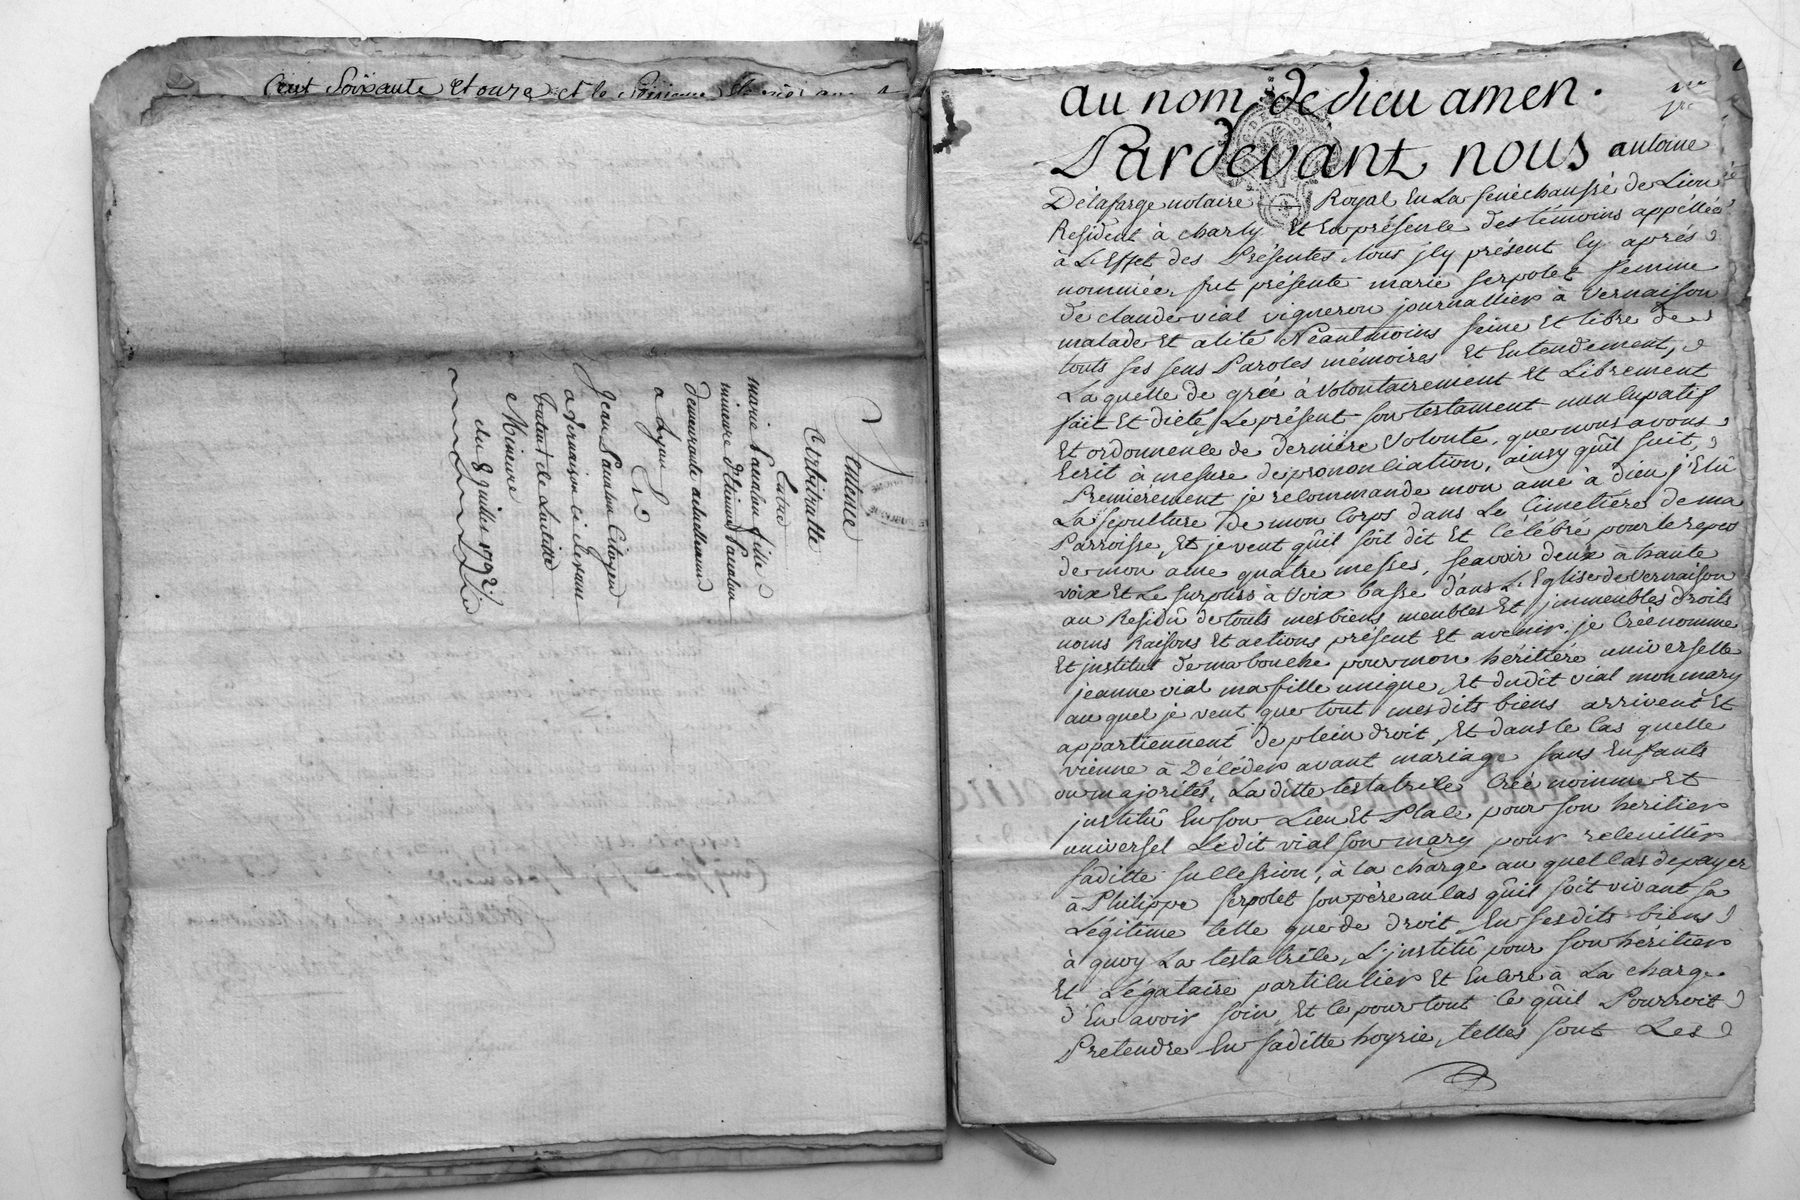 Cent Soixante et onze et le
Sentence
Arbitralle
Entre
marie fille
mineure
demeurante actuellement
a Lyon
Et
Jean Citoyen
a Vernaison cidevant
tuteur de Laditte
Mineure
du 8 juillet 1792
au nom de dieu amen.
Pardevant nous antoine
Délafarge notaire Royal En La senéchaussé de Lion
Résident à charly Et En présence des témoins appéllés
à L'Effet des Présentes tous jcy présent cy aprés
nommée, fut présente marie serpolet femme
de claude vial vigneron journallier à vernaison
malade et alité Néantmoins seine Et libre de
touts ses sens Paroles mémoires Et Entendement,
La quelle de gréé à volontairement Et Librement
fait Et dicté, Le présent son testament nuncupatif
Et ordonnence de derniére volonté, que nous avons
Ecrit à mesure de prononciation, ainsy qûil suit,
Premierement je recommande mon ame à dieu j'Elû
La sépulture de mon Corps dans Le Cimetiére de ma
Parroisse, Et je veut qûil soit dit Et Célébré pour le repos
de mon ame quatre messes, sçavoir deux a haute
voix Et Le surpliss a voix basse dans L'Eglise de vernaison
au Residû de touts mes biens meubles Et jmmeubles droits
noms Raisons Et actions, présent Et avenir, je Créé nomme
Et jnstitut de ma bouche pour mon héritiére universelle
jeanne vial ma fille unique, Et dudit vial mon mary
au quel je veut que tout mesdits biens arrivent Et
appartiennent de plein droit, Et dans le Cas quelle
vienne à Décéder avant mariage sans Enfants
ou majorités, La ditte testatrice Créé nomme Et
jnstitû En son Lieu Et Place pour son héritier
universel Ledit vial son mary pour recuillir
saditte succession, à la charge au quel cas de payer
à Philippe serpolet son pére au cas qûil soit vivant sa
Légitime telle que de droit, En sesdits biens
à quoy La testatrice, L'jnstitû pour son héritier
Et Légataire particulier Et Encore à La charge
d'En avoir soin, Et ce pour tout ce qûil Pourroit
Pretendre En saditte hoyrie, telles sont Les